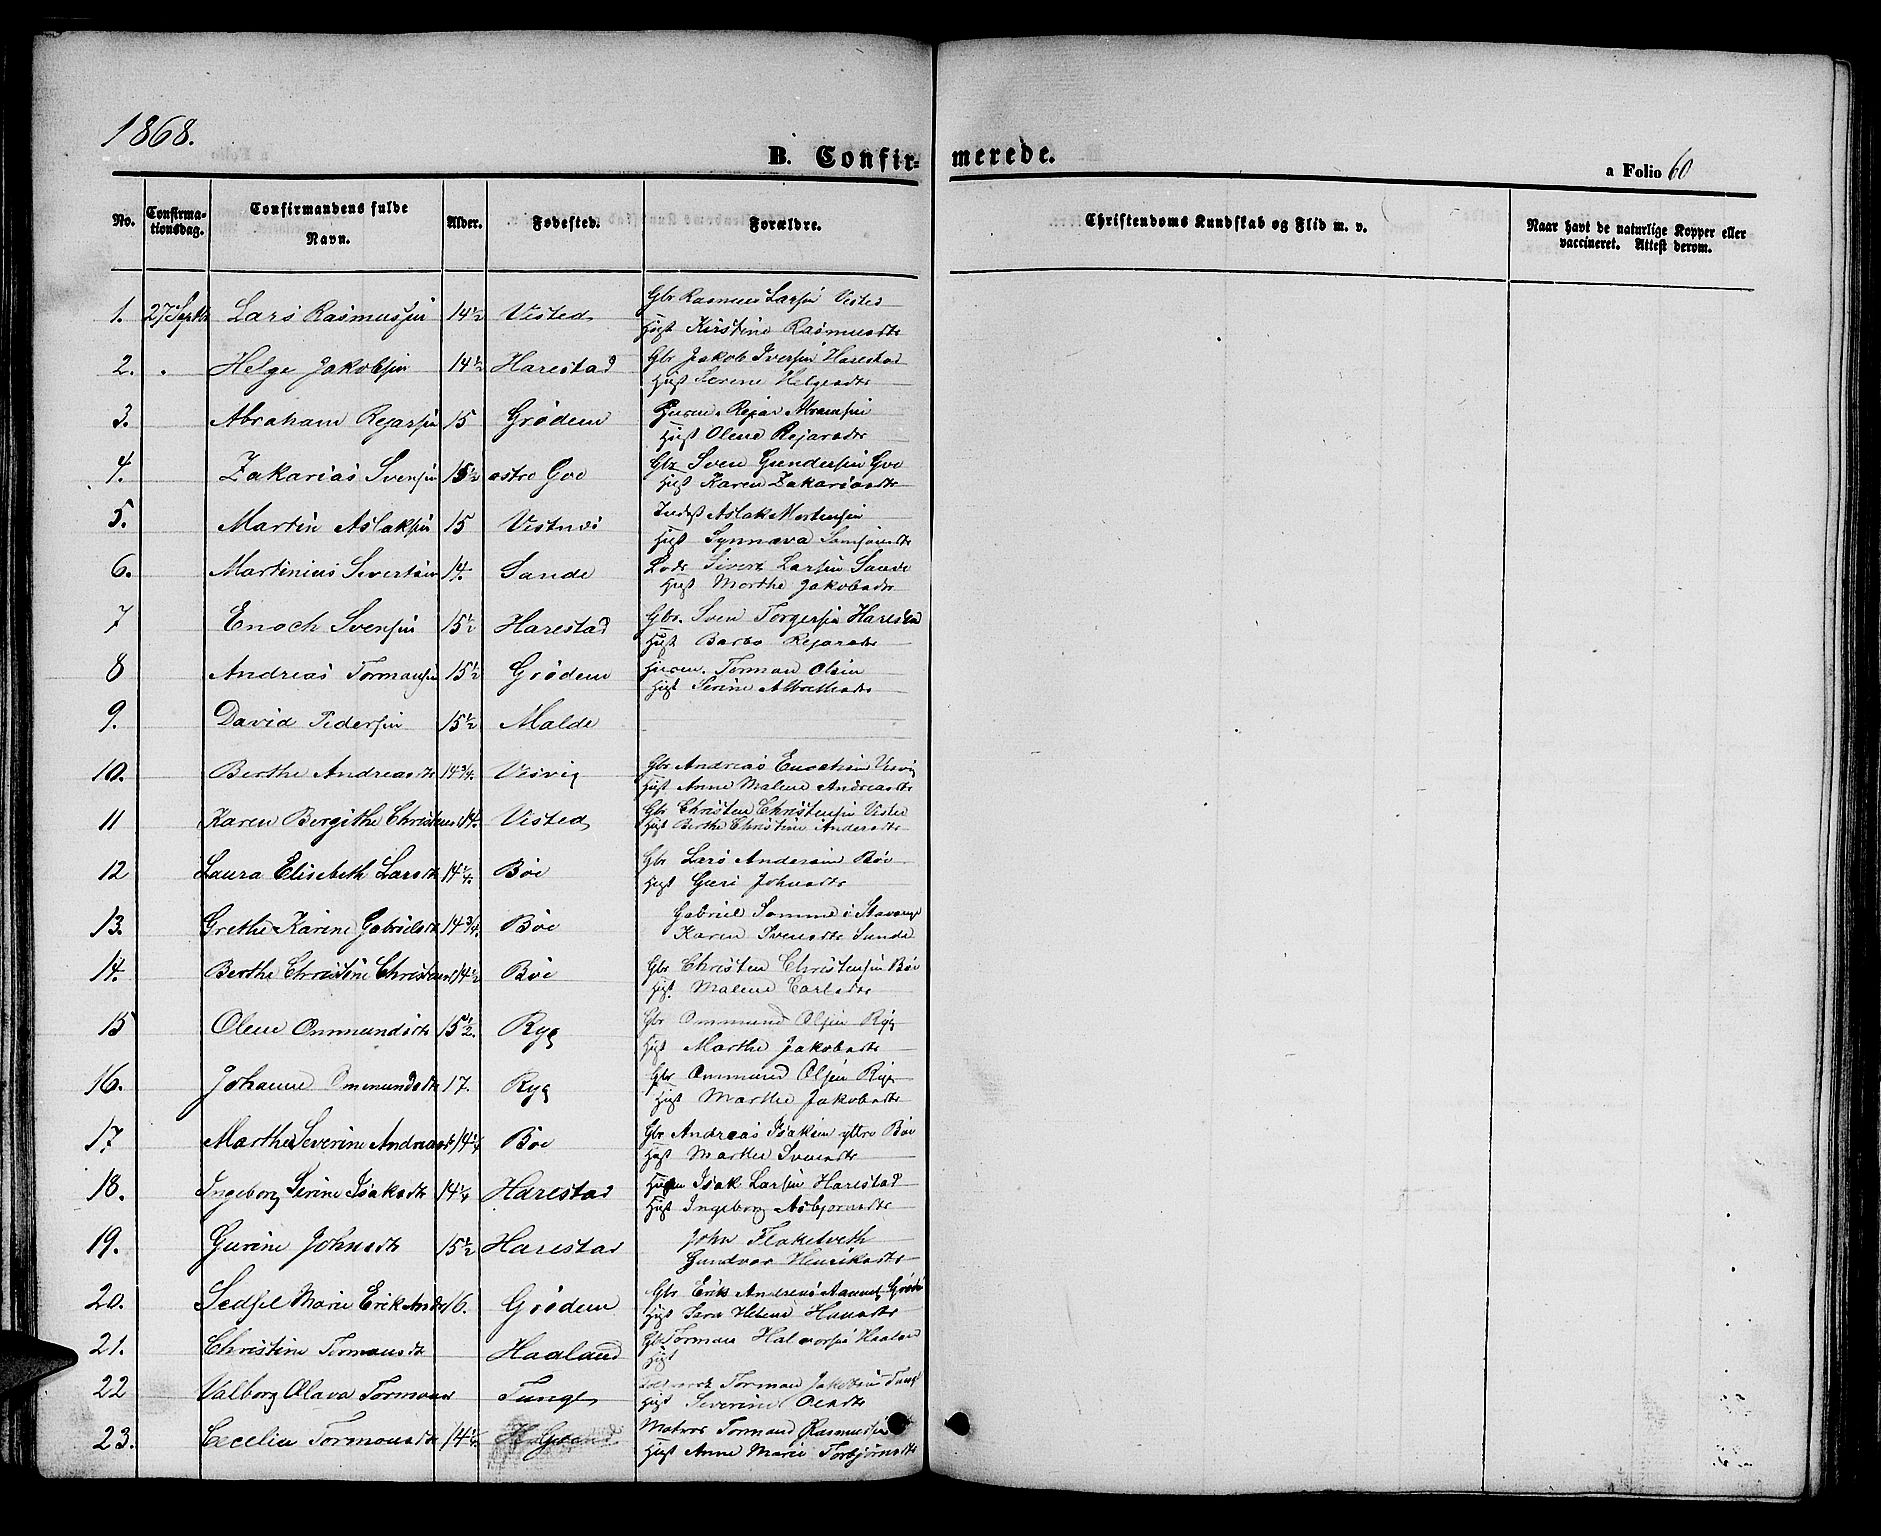 1868.
B. Confir-
merede.
a Folio 60
No.
Confirma-
tionsdag.
Confirmandens fulde
Navn.
Alder.
Fødested.
Forældre.
Christendoms Kundskab og Flid m. v.
Naar havt de naturlige Kopper eller
vaccineret. Attest derom.
1. 27 Septbr Lars Rasmussen 14½ Visted Gbr Rasmus Larsen Visted
Hust Kirstine Rasmusdtr
2. Helge Jakobsen 14½ Harestad Gbr Jakob Iversen Harestad
Hust Serene Helgesdtr
3. Abraham Rejarsen 15 Grødem Rejar
Hust Olene Rejarsdtr
4. Zakarias Svensen 15½ østre Goe Gbr Sven Gundersen Goe
Hust Karen Zakariasdtr
5. Martin Aslaksen 15 Vistnæs Inderst Aslak Mortensen
Hust Synnøva Samsonsdtr
6. Martinius Sivertsen 14. Sande Lods Sivert Larsen Sande
Hust Marthe Jakobsdtr
7 Enoch Svensen 15½ Harestad Gbr. Sven Torgersen Harestad
Hust Barbro Rejarsdtr
8 Andreas Tormansen 15½ Grødem Huusm. Torman Olsen
Hust Serine Albretsdtr
9. David Pedersen 15½ Malde
10. Berthe Andreasdtr 14¾. Visvig Gbr Andreas Enochsen Visvig
Hust Anne Malene Andreasdtr
11 Karen Bergithe Christens 14. Visted Gbr Christen Christensen Visted
Hust Berthe Christine Andersdtr
12 Laura Elisebeth Larsdtr 14¼. Bøe Gbr Lars Andersen Bøe
Hust Guri Johnsdtr
13. Grethe Karine Gabrielsdtr 14¾. Bøe Gabriel Sømme i Stavanger
Karen Svensdtr Sunde
14. Berthe Christine Christens 14½ Bøe Gbr Christen Christensen Bøe
Hust. Malene Carlsdtr
15 Olene Ommundsdtr 15½. Ryg Gbr Ommund Olsen Ryg
Hust Marthe Jakobsdtr
16. Johanne Ommundsdtr 17. Ryg Gbr Ommund Olsen Ryg
Hust Marthe Jakobsdtr
17. Marthe Severine Andreasdtr 14¼ Bøe Gbr Andreas Isaksen yttre Bøe
Hust Marthe Svensdtr
18. Ingeborg Serine Isaksdtr 14¼ Harestad Isak Larsen Harestad
Hust Ingeborg Asbjørnsdtr
19. Gurine Johnsdtr 15½ Harestad John Fløketveth
Gundvor Henriksdtr
20. Sedsel Marie Erik Andr 16. Grødem Gbr Erik Andreas Grødem
Hust Sara Helene Hansdtr
21. Christine Tormansdtr Haaland Gbr Torman Halvorsen Haaland
Hust
22 Valborg Olava Tormans Tunge Torman Jakobsen Tunge
Hust Severine Olsdtr
23. Cecelia Tormansdtr 14¼ Matros Tormand Rasmussen
Hust Anne Marie Torbjørnsdtr